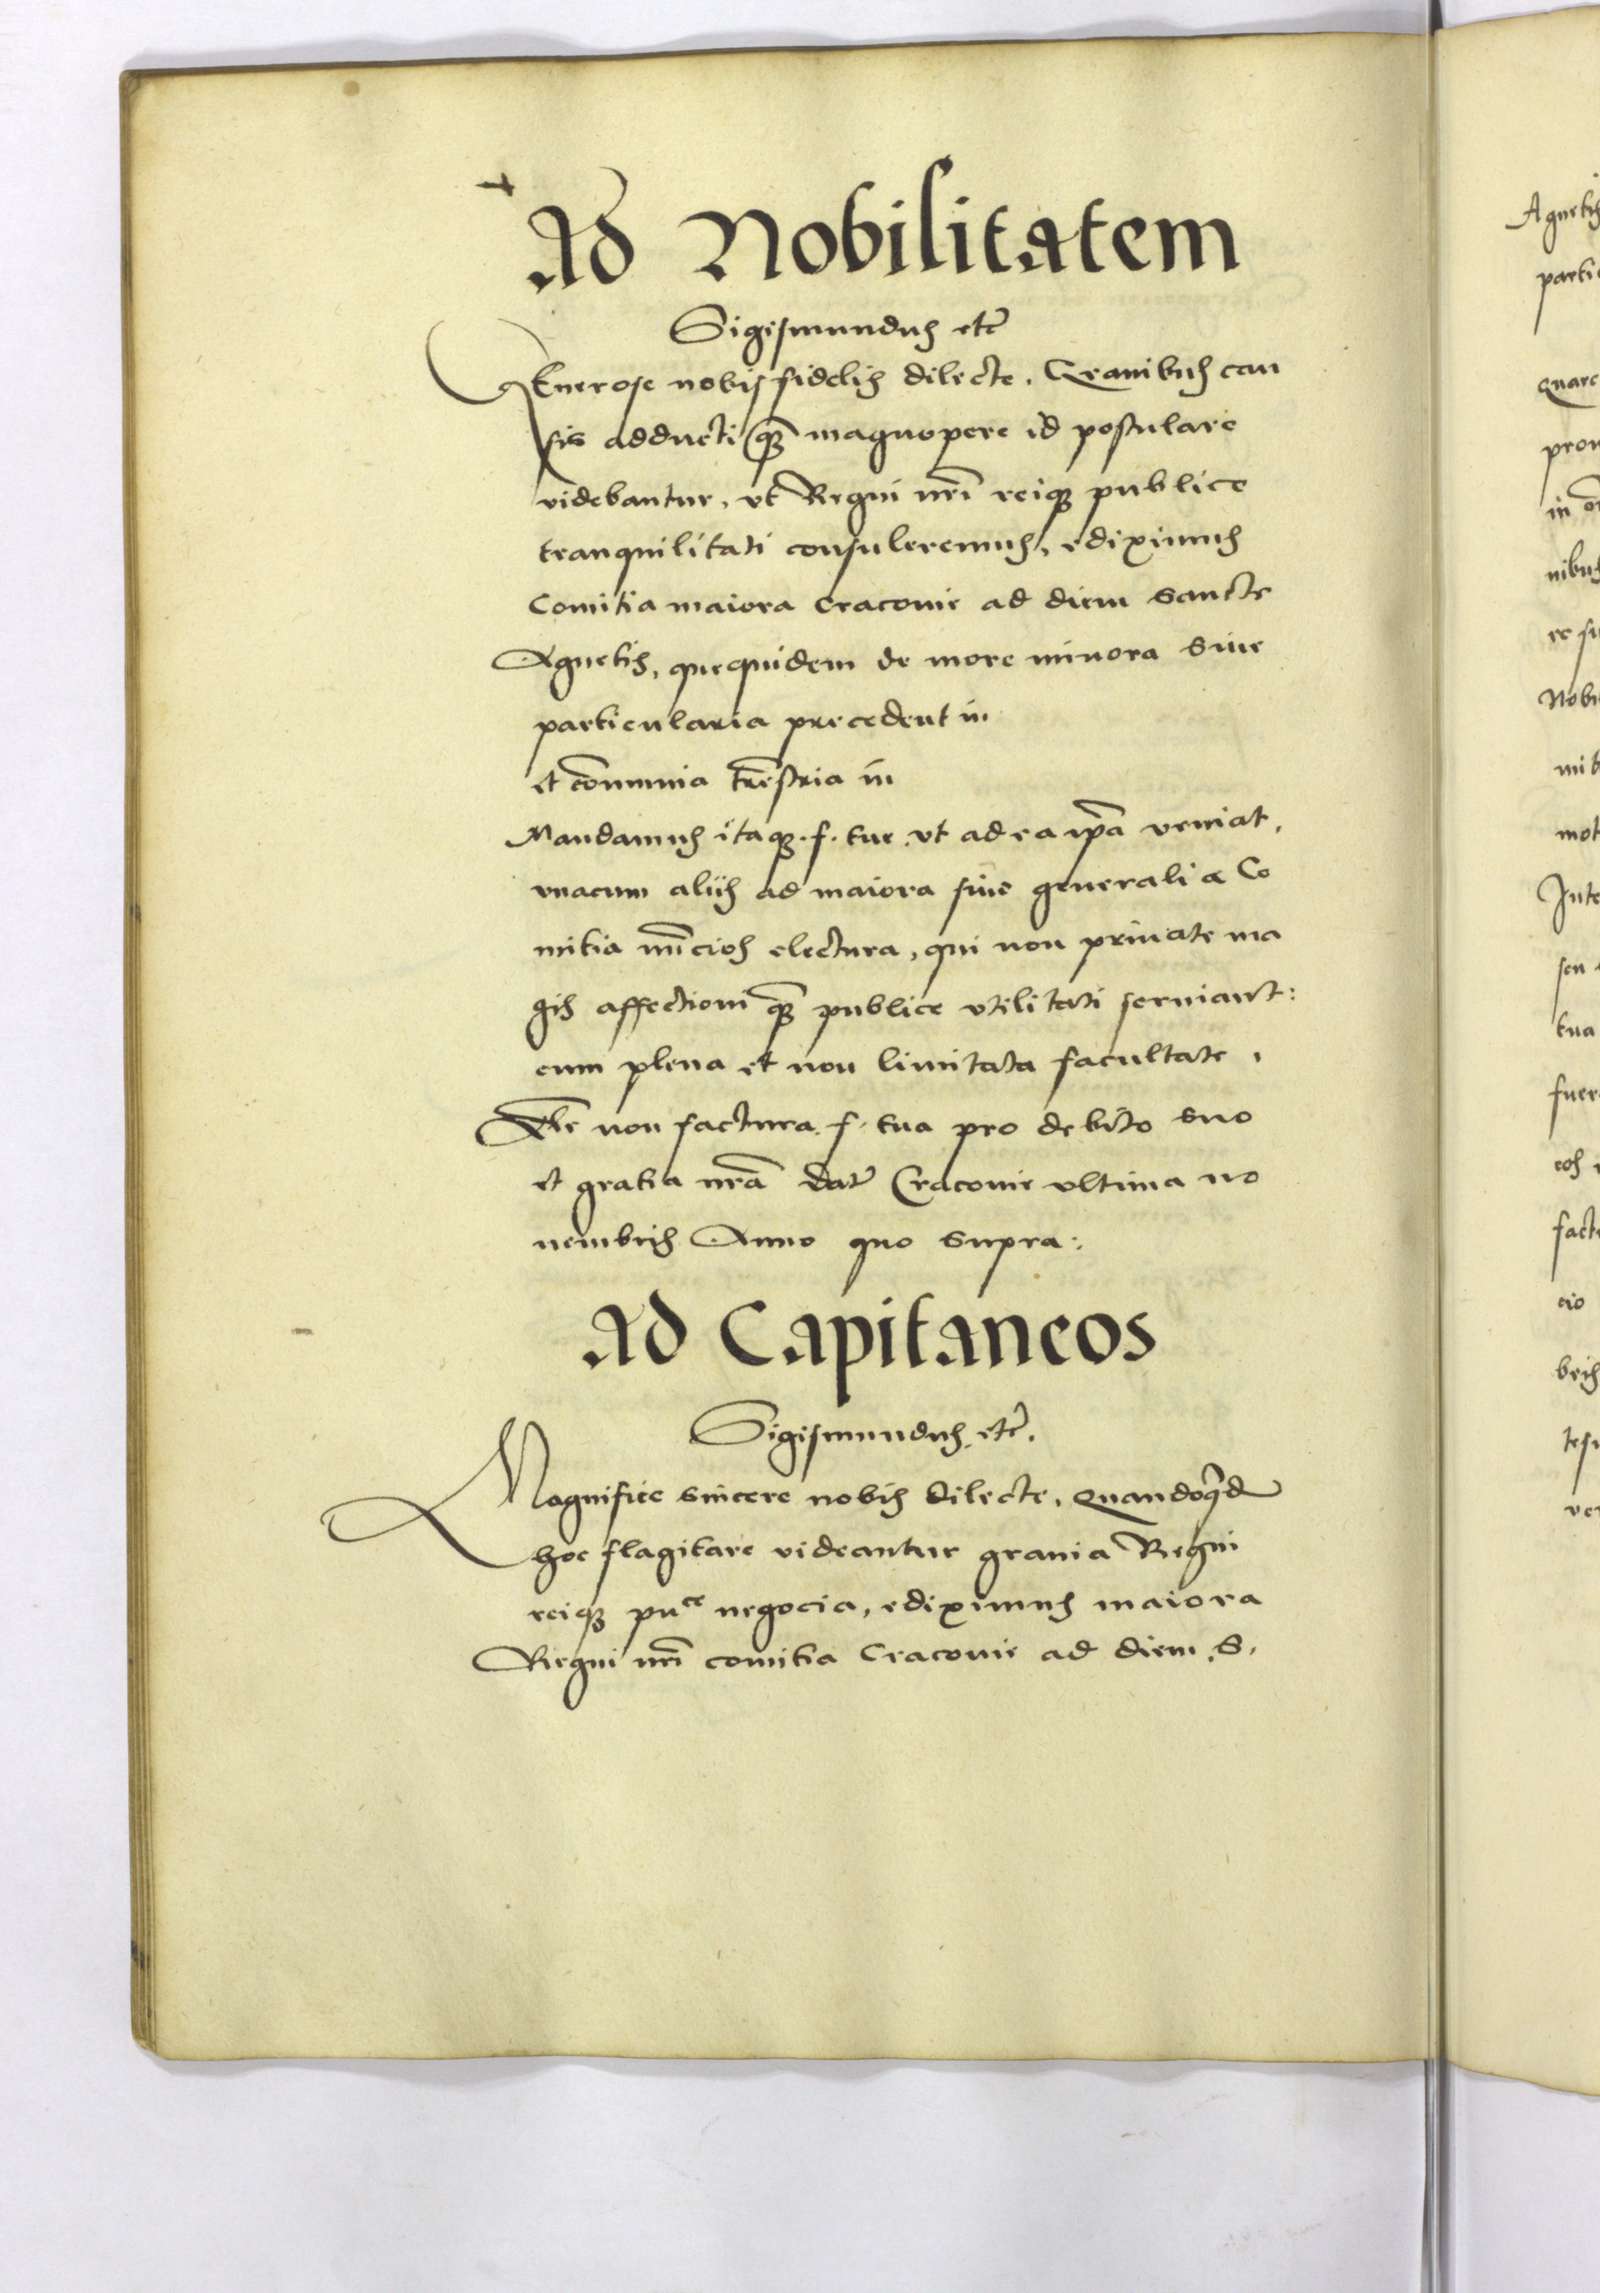 Ad Nobilitatem
Sigismundus etc̄
Generose nobis fidelis dilecte. Gravibus cau
sis adducti que magnopere id postulare
videbantur, ut Regni nr̄i reiq3 publice
tranquilitati consuleremus, ediximus
Comitia maiora Cracovie ad diem Sancte
Agnetis, que quidem de more minora sive
particularia precedent in
et com̄unia trēstria in
Mandamus itaq3 . f. tue . ut ad ea ip̄a veniat,
unacum aliis ad maiora sive generalia Co
mitia nūcios electura, qui non private ma
gis affectioni q̄3 publice utilitati serviant:
cum plena et non limitata facultate,
Alr̄ non factura . f. tua pro debito suo
et gratia nr̄a dat̄ Cracovie ultima no
vembris Anno quo supra:
Ad Capitaneos
Sigismundus. etc̄.
Magnifice sincere nobis dilecte. Quandoq̄d
hoc flagitare videantur gravia Regni
reiq3 puce negocia, ediximus maiora
Regni nr̄i comitia Cracovie ad diem . S.
Agnetis
parti
quare
pro
in
nibus
re su
Nobi
mit
mot
Inte
seu
tua
fuer
cos
fact
cio
bris
tes
ver